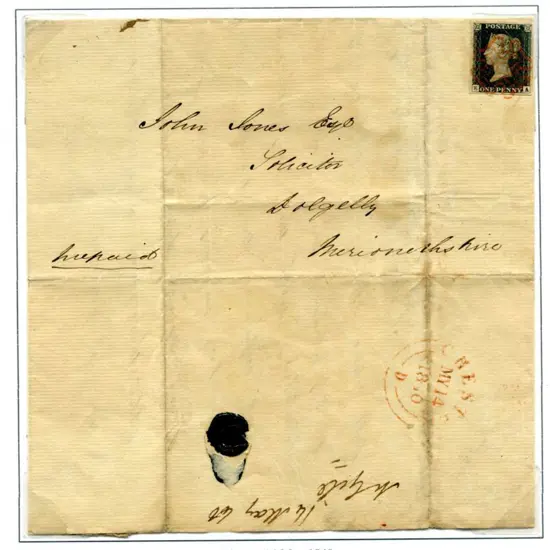 POSTAGE
ONE PENNY
John Jones Esqr
Solicitor
Dolgelly
Merionethshire
prepaid
MY 14
14 May 40